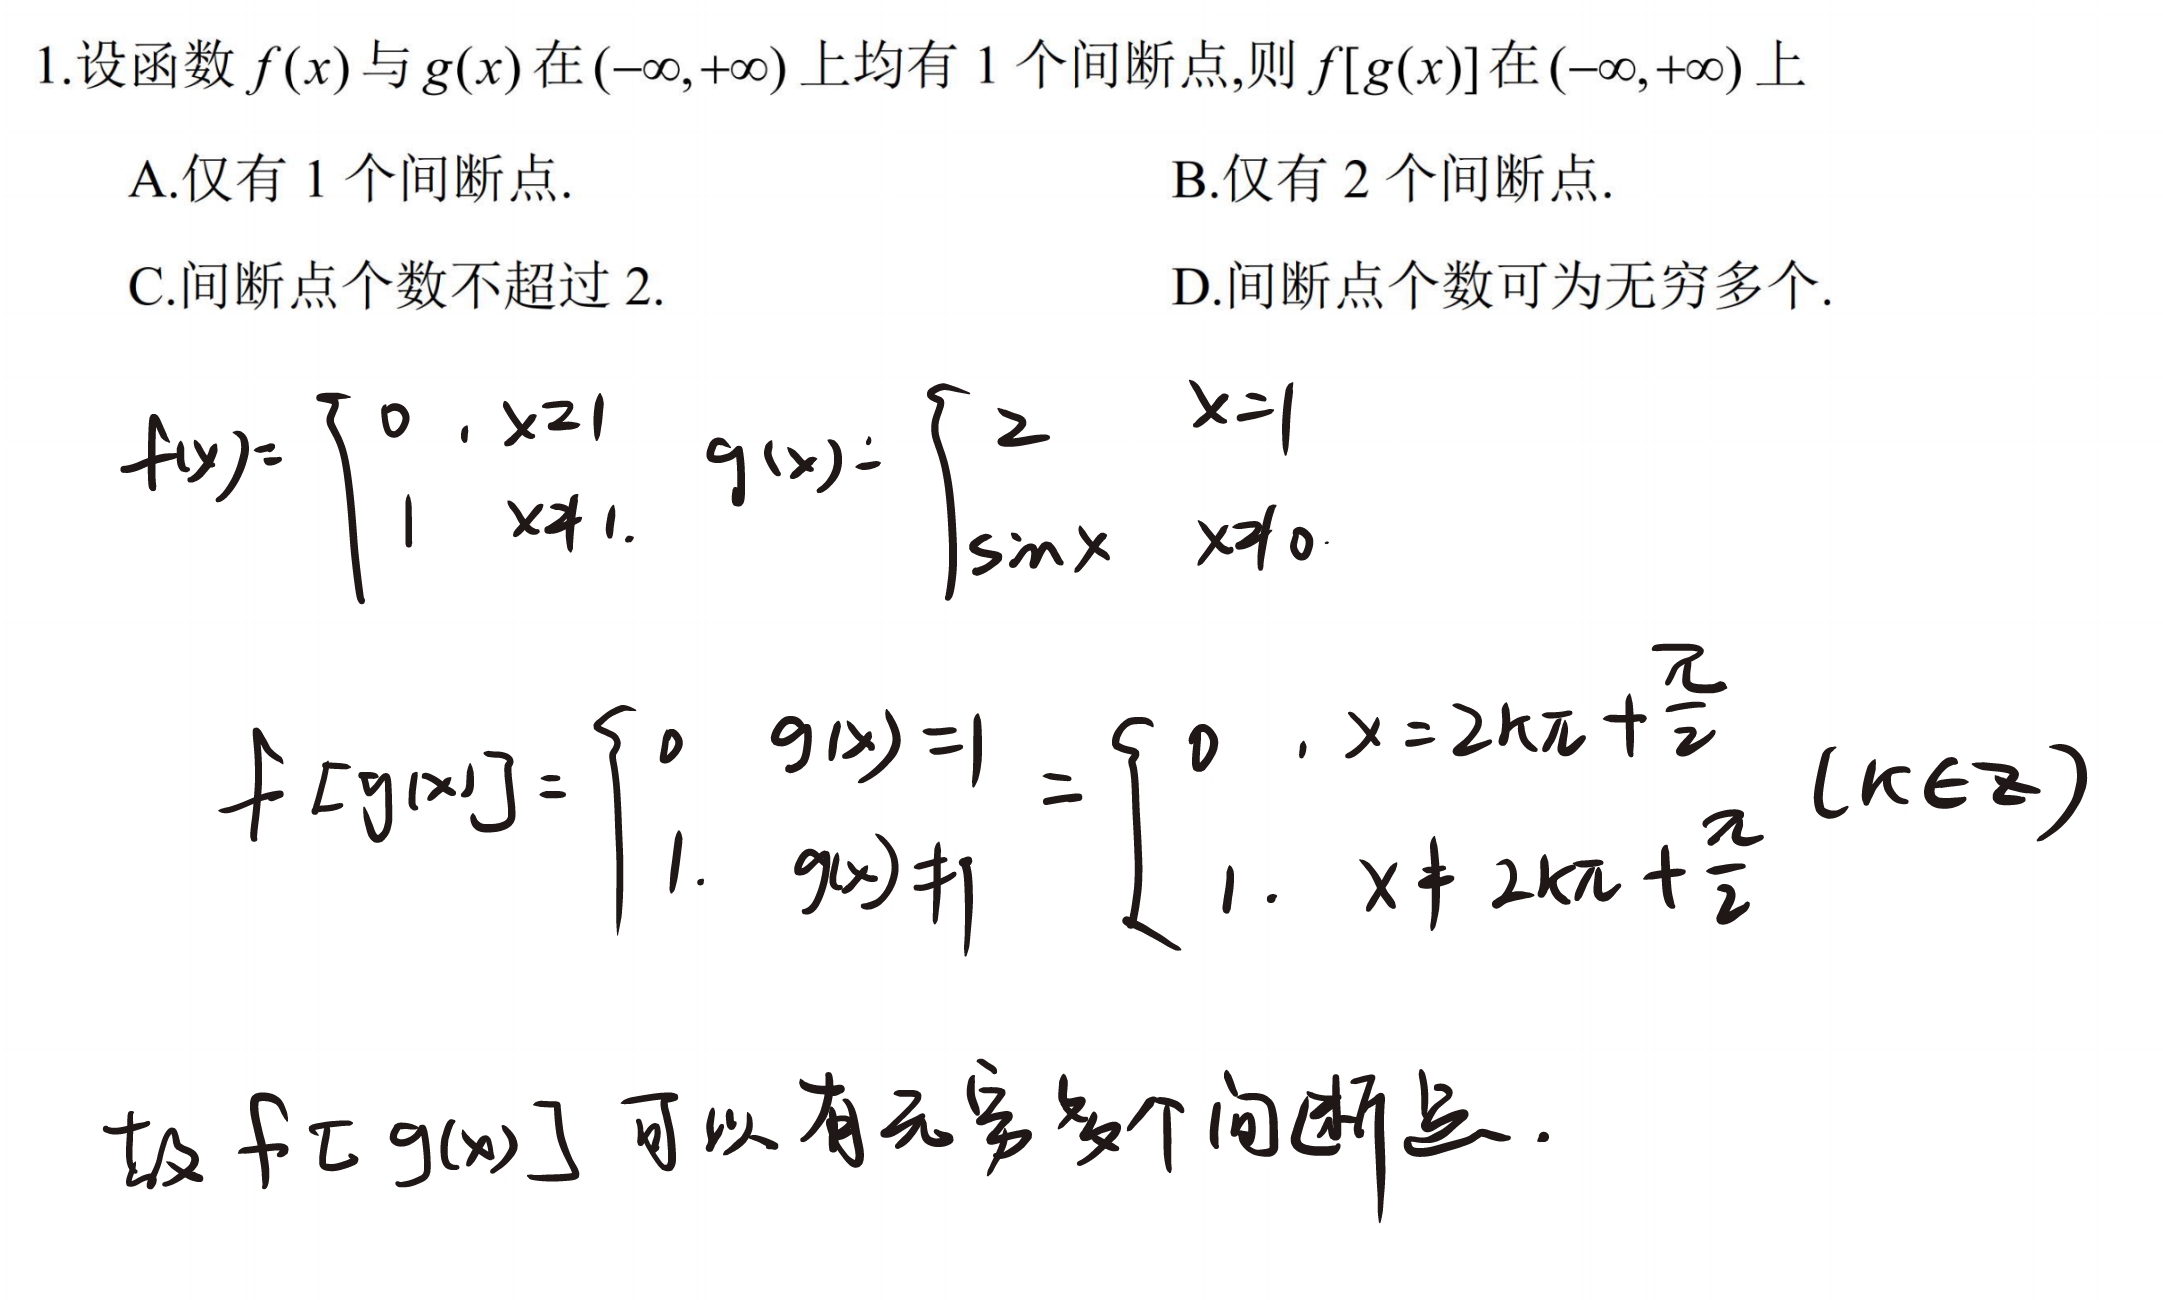 1.设函数 f(x) 与 g(x) 在 (−∞,+∞) 上均有 1 个间断点,则 f[g(x)] 在 (−∞,+∞) 上
A.仅有 1 个间断点. B.仅有 2 个间断点.
C.间断点个数不超过 2. D.间断点个数可为无穷多个.
f(x)= { 0 , x=1 g(x)= { 2 x=1
1 x≠1. sinx x≠0.
f[g(x)]= { 0 g(x)=1 = { 0 , x=2kπ+π/2 (k∈Z)
1. g(x)≠1 1. x≠2kπ+π/2
故 f[g(x)] 可以有无穷多个间断点.